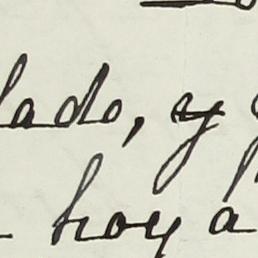 lado, y
hoy a